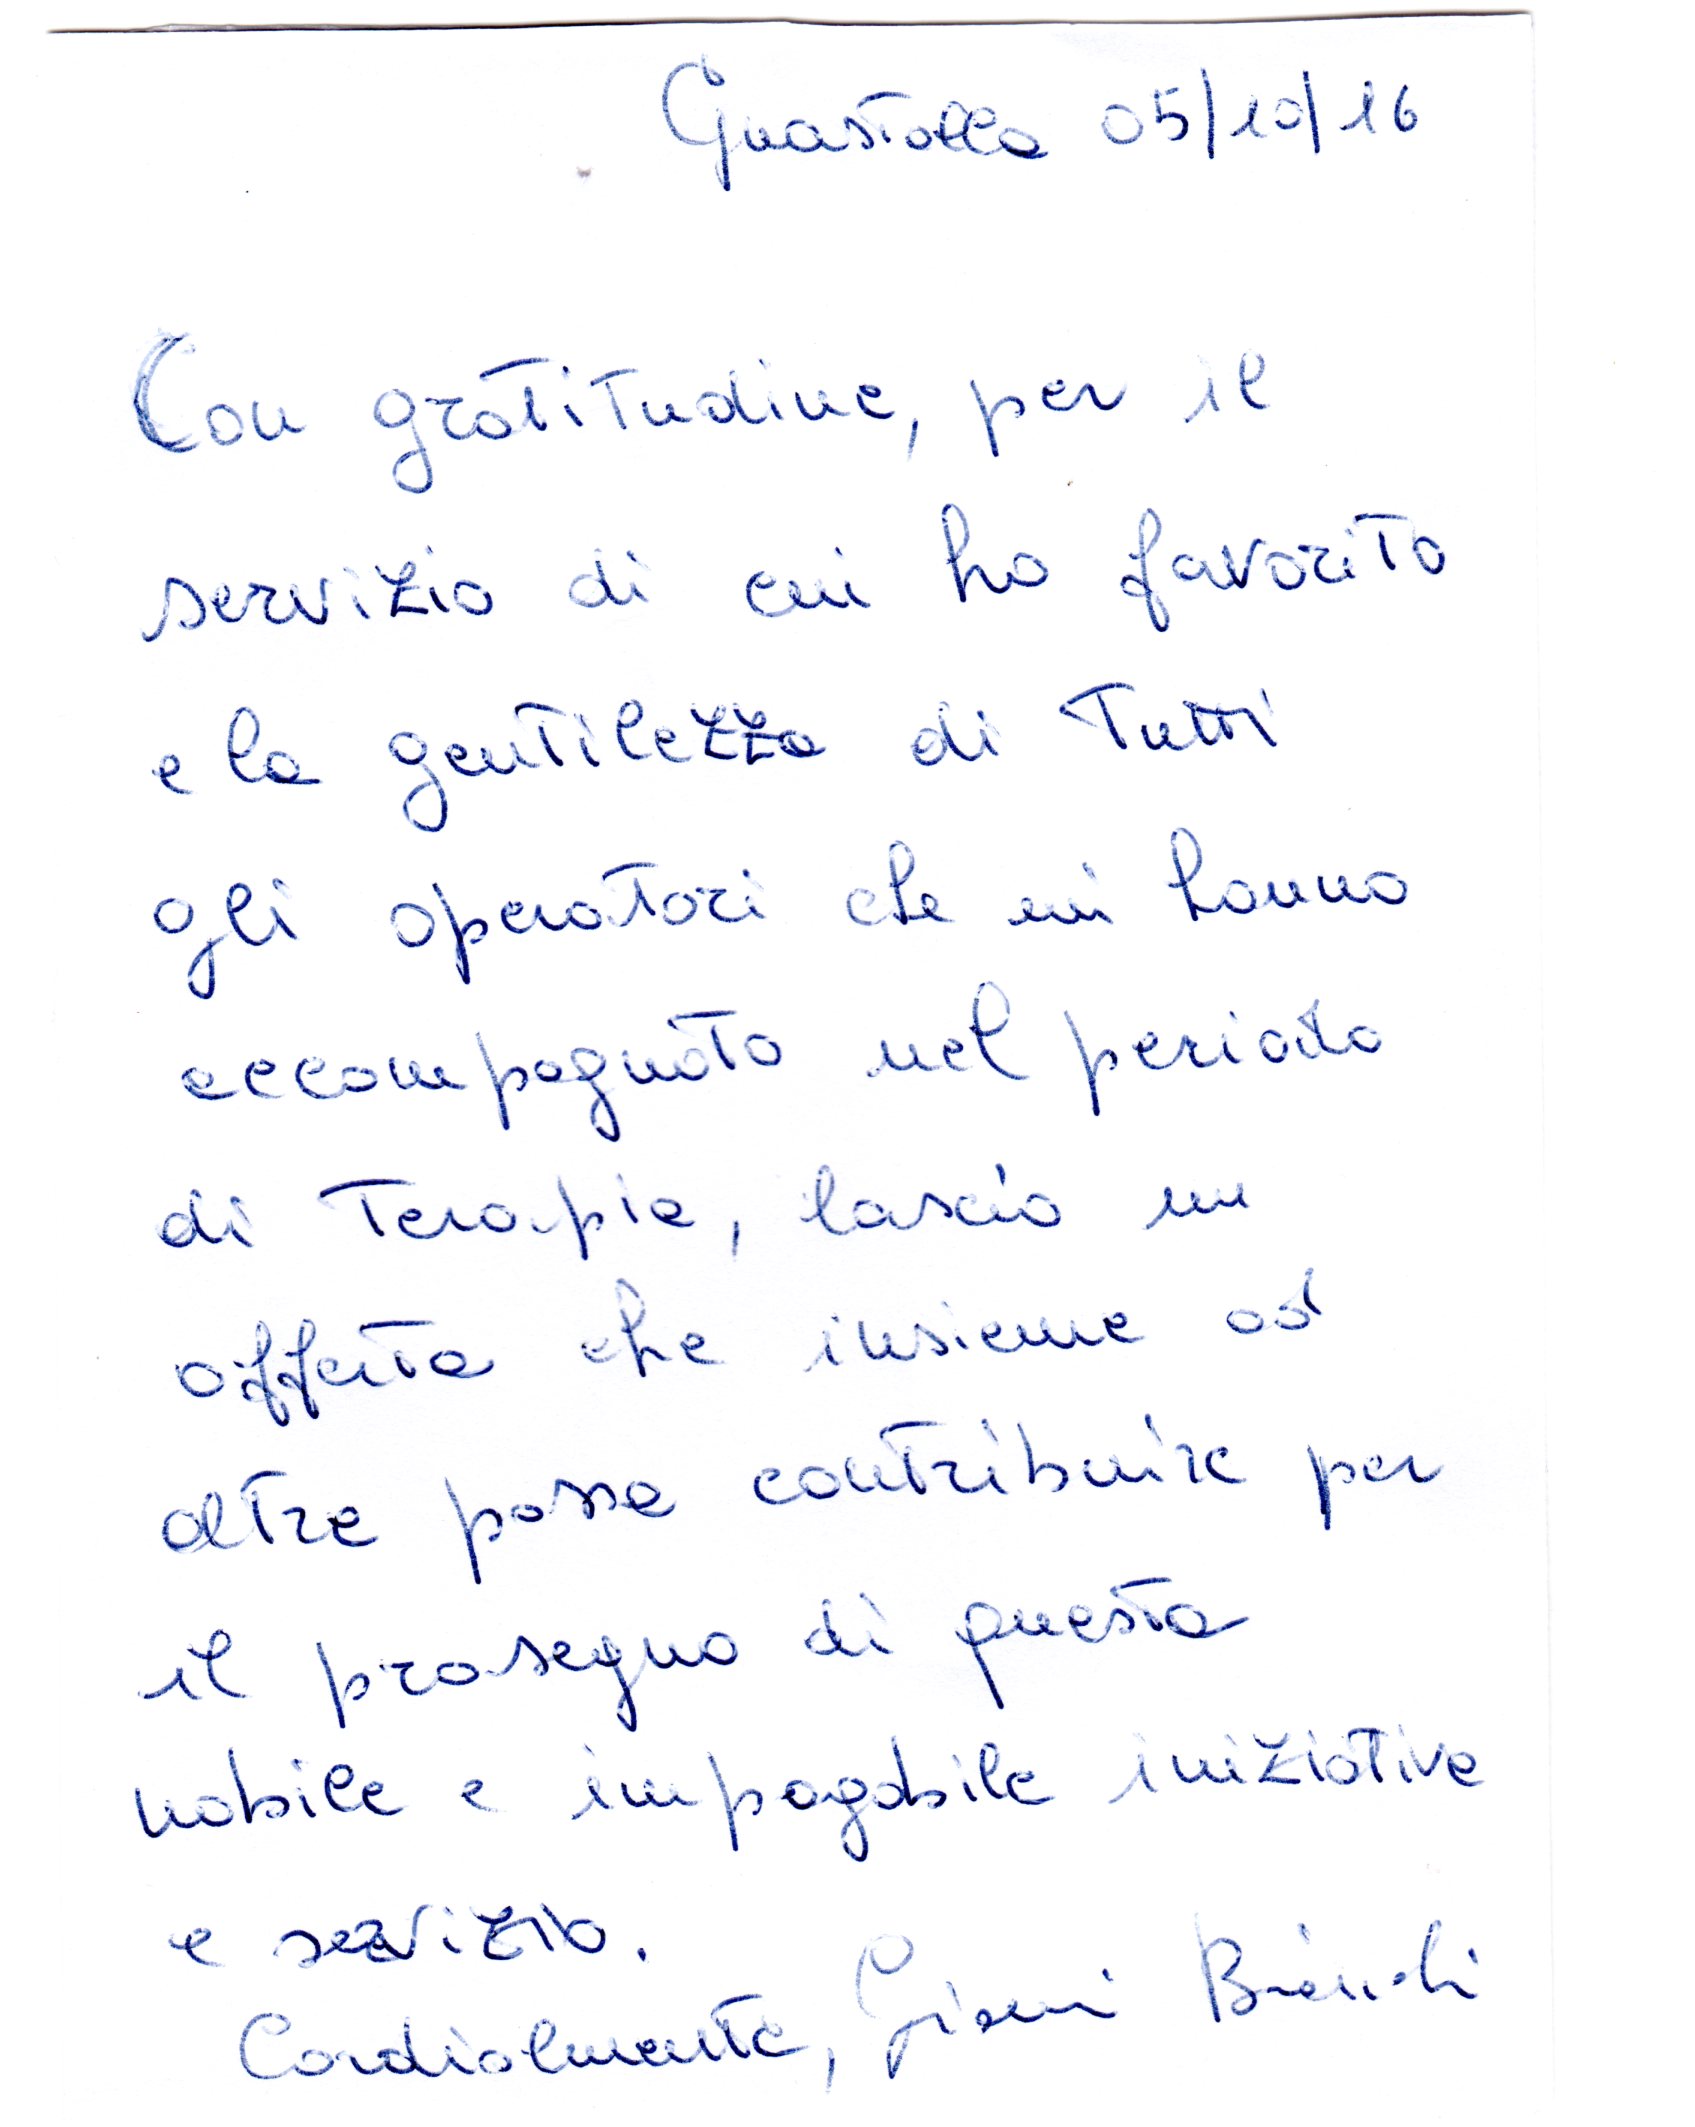 Guastalla 05/10/16
Con gratitudine, per il
servizio di cui ho favorito
e la gentilezza di tutti
gli operatori che mi hanno
accompagnato nel periodo
di terapia, lascio un
offerta che insieme ad
altre possa contribuire per
il proseguo di questa
nobile e impagabile iniziativa
e servizio.
Cordialmente, Gianni Bianchi